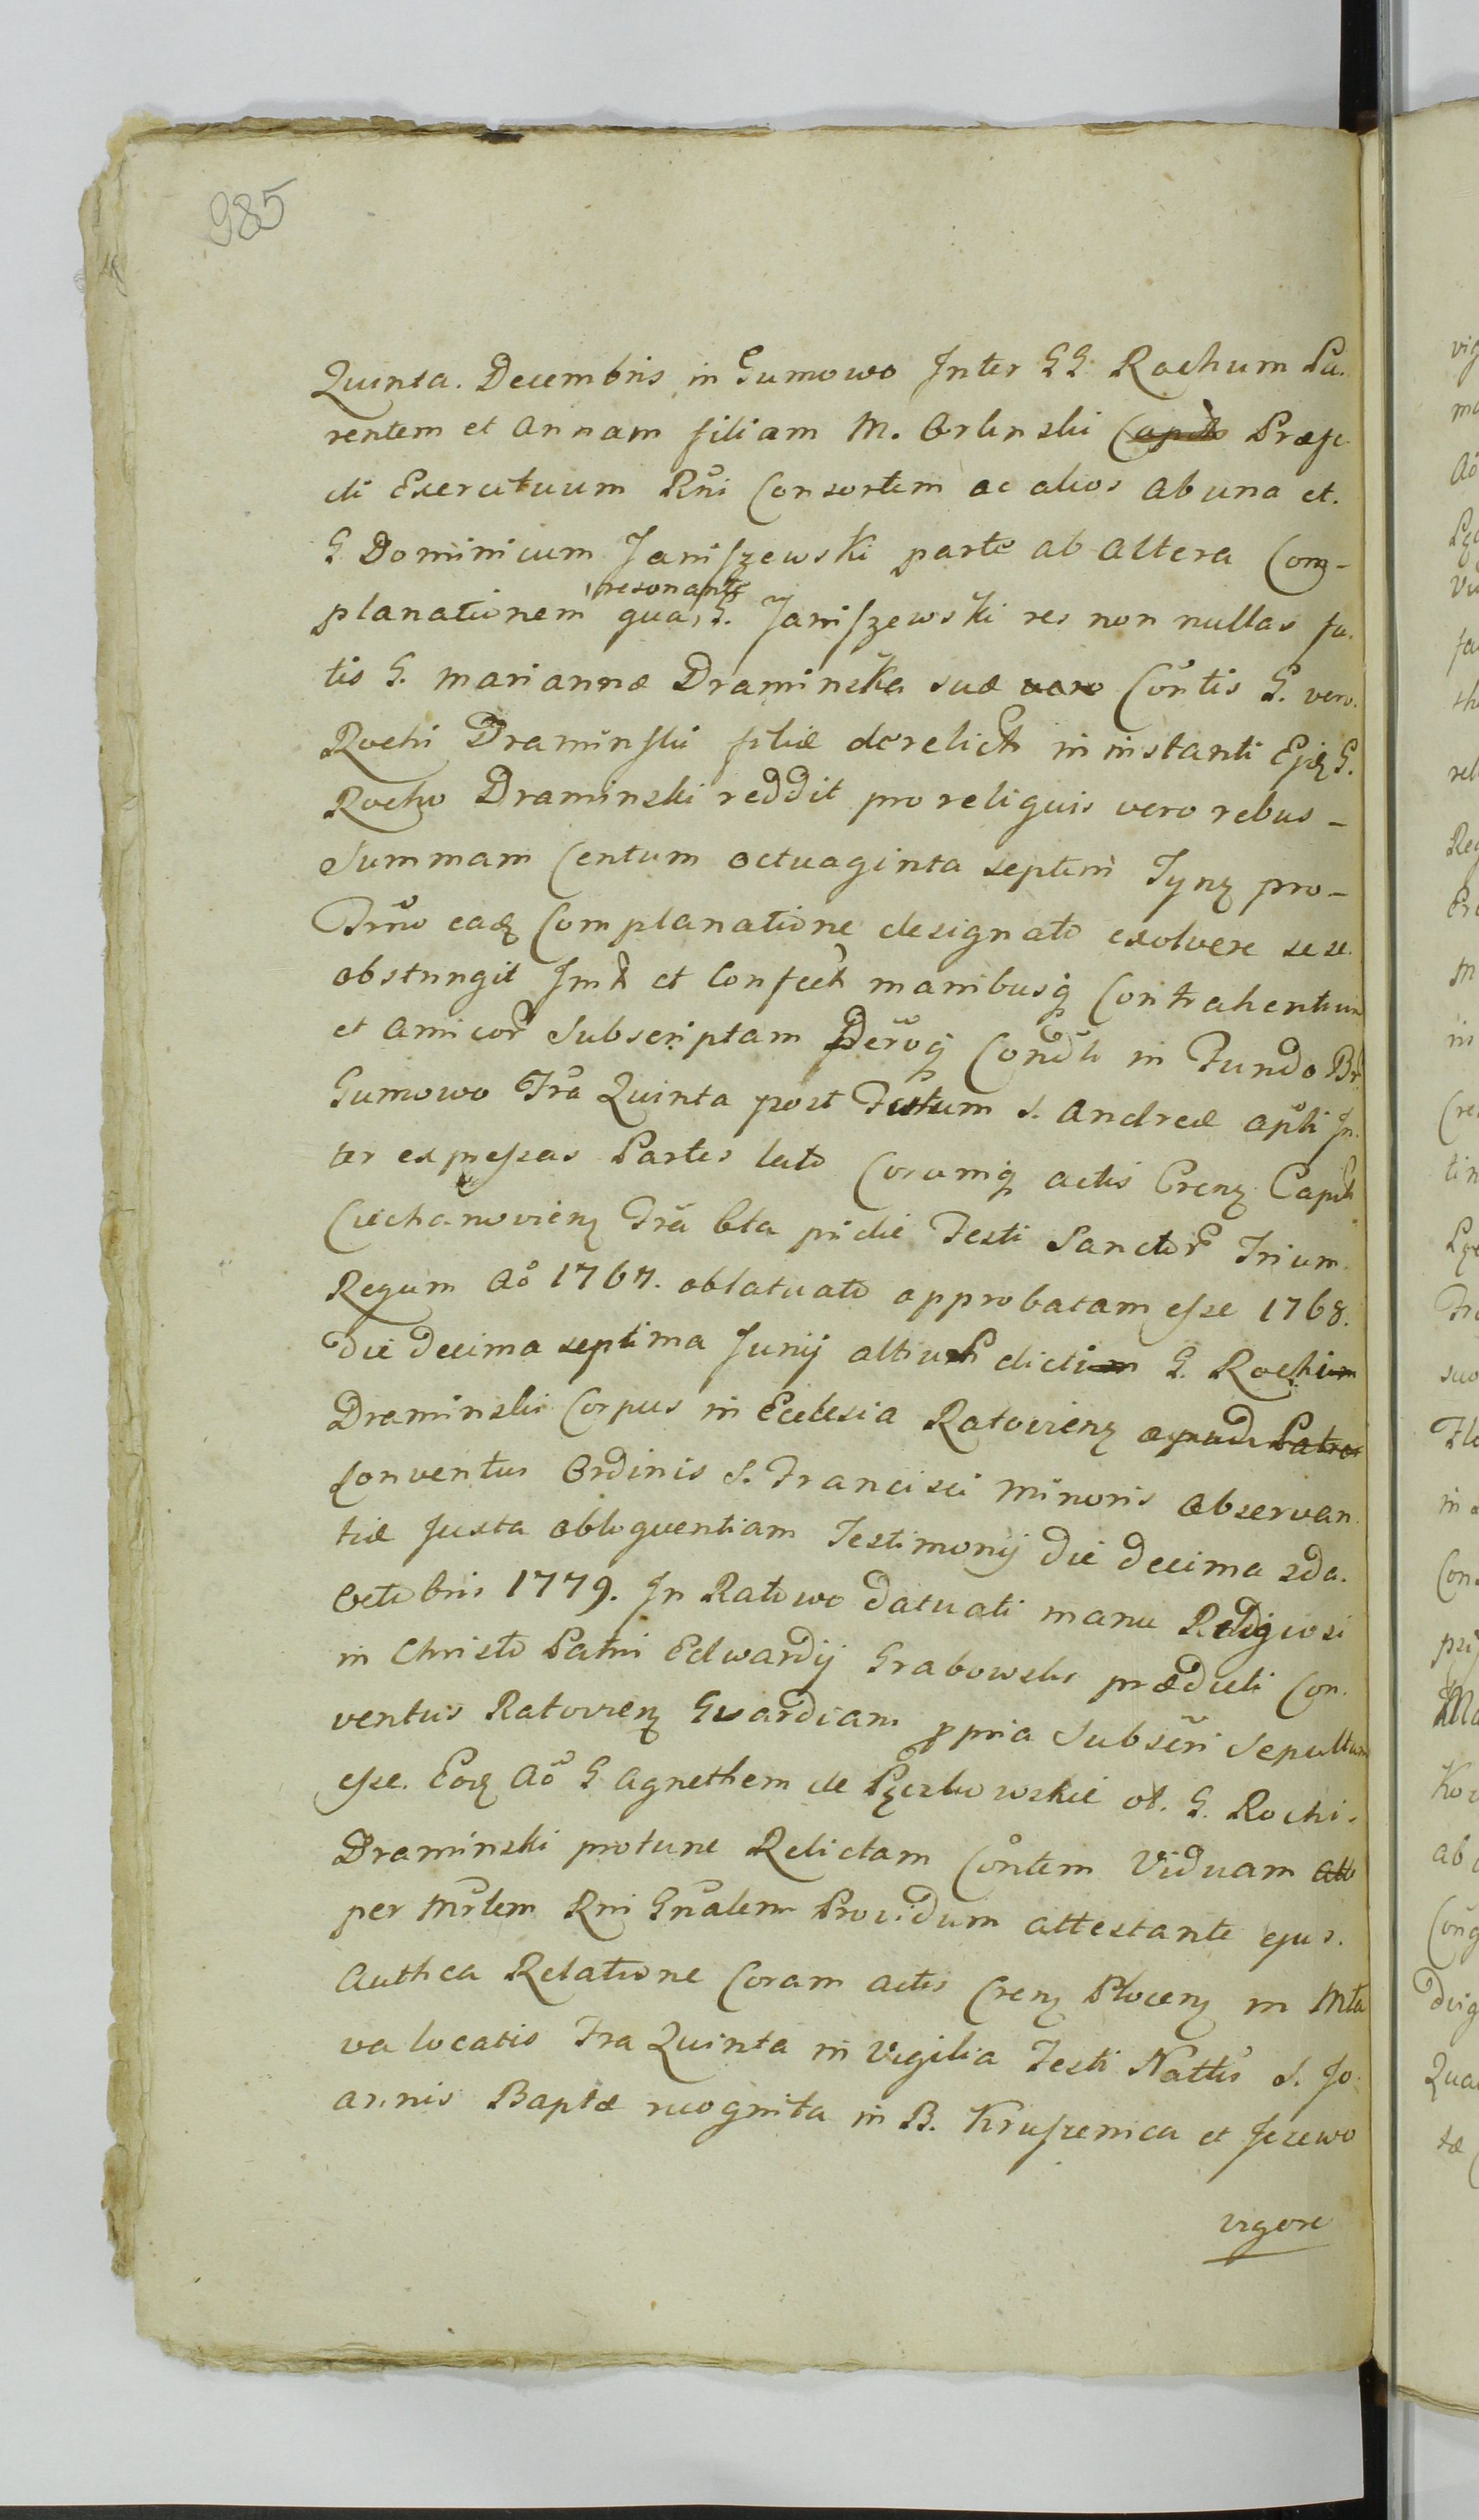 985
Quinta. Decembris in Gumowo Inter GG Rochum Pa-
rentem et Annam filiam M. Orlinski Capits Præfe
cti Exercituum Rni Consortem ac alios ab una et.
G. Dominicum Janiszewski parte ab altera Com-
planationem qua, G. Janiszewski res non nullas fa.
resonante
tis G. Mariannæ Draminska suæ vero Contis G. vero.
Rochi Draminski filiæ derelicti in instanti Ejq G.
Rocho Draminski reddit pro reliquis vero rebus -
Summam Centum octuaginta septem Tynz pro-
Trno eadq Complanatione designato exolvere sese.
obstringit et Confect manibusq Contrahentium
et Amicor Subscriptam in Fundo Br
Gumowo Fra Quinta post Festum S. Andreæ Apli In.
ter expressas Partes lato Coramq actis Crenz Capit
Ciechanovienz Fra 6ta pridie Festi Sanctor Trium.
Regum Ao 1767. oblatuato approbatam esse 1768.
Die Decima septima Junij altius dictum G. Rochum
Draminski Corpus in Ecclesia Ratovienz apud Patres
Conventus Ordinis S. Francisci Minoris Observan.
tiæ Juxta obloquentiam Testimonij Die Decima 2da.
Octobris 1779. In Ratowo datuati manu Religiosi
in Christo Patri Edwardij Grabowski præducti Con.
ventus Ratovienz Guardiani ppria Subscri Sepultum
esse. Eoq Ao G Agnethem de ol. G. Rochi.
Draminski protunc Relictam Contem Viduam att
per Mrlem Rni Gnalem Providum attestante ejus.
Authca Relatione Coram actis Crenz Plocenz in Mła
va locatis Fra Quinta in Vigilia Festi Nattis S. Jo.
annis Baptæ recognita in B. Kruszenica et Jezewo
vigore